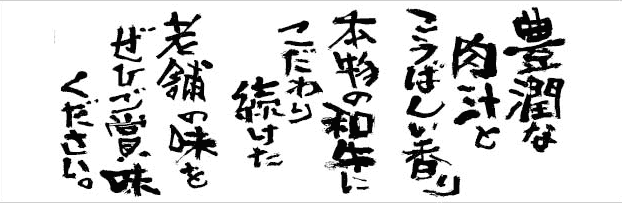 豊潤な
肉汁と
こうばしい香り
本物の和牛に
こだわり
続けた
老舗の味を
ぜひご賞味
ください。